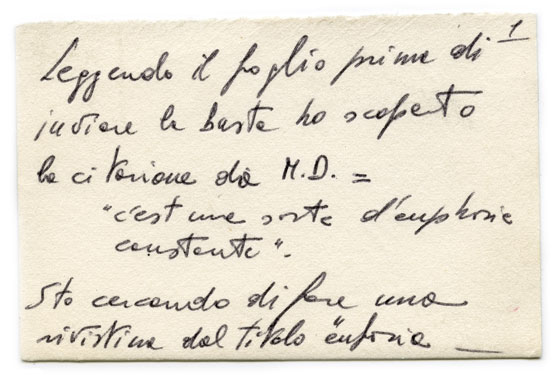 Leggendo il foglio prima di 1
inviare la busta ho scoperto
la citazione da M.D. =
"c'est une sorte d'euphorie
constante".
Sto cercando di fare una
rivistina dal titolo "enforia —